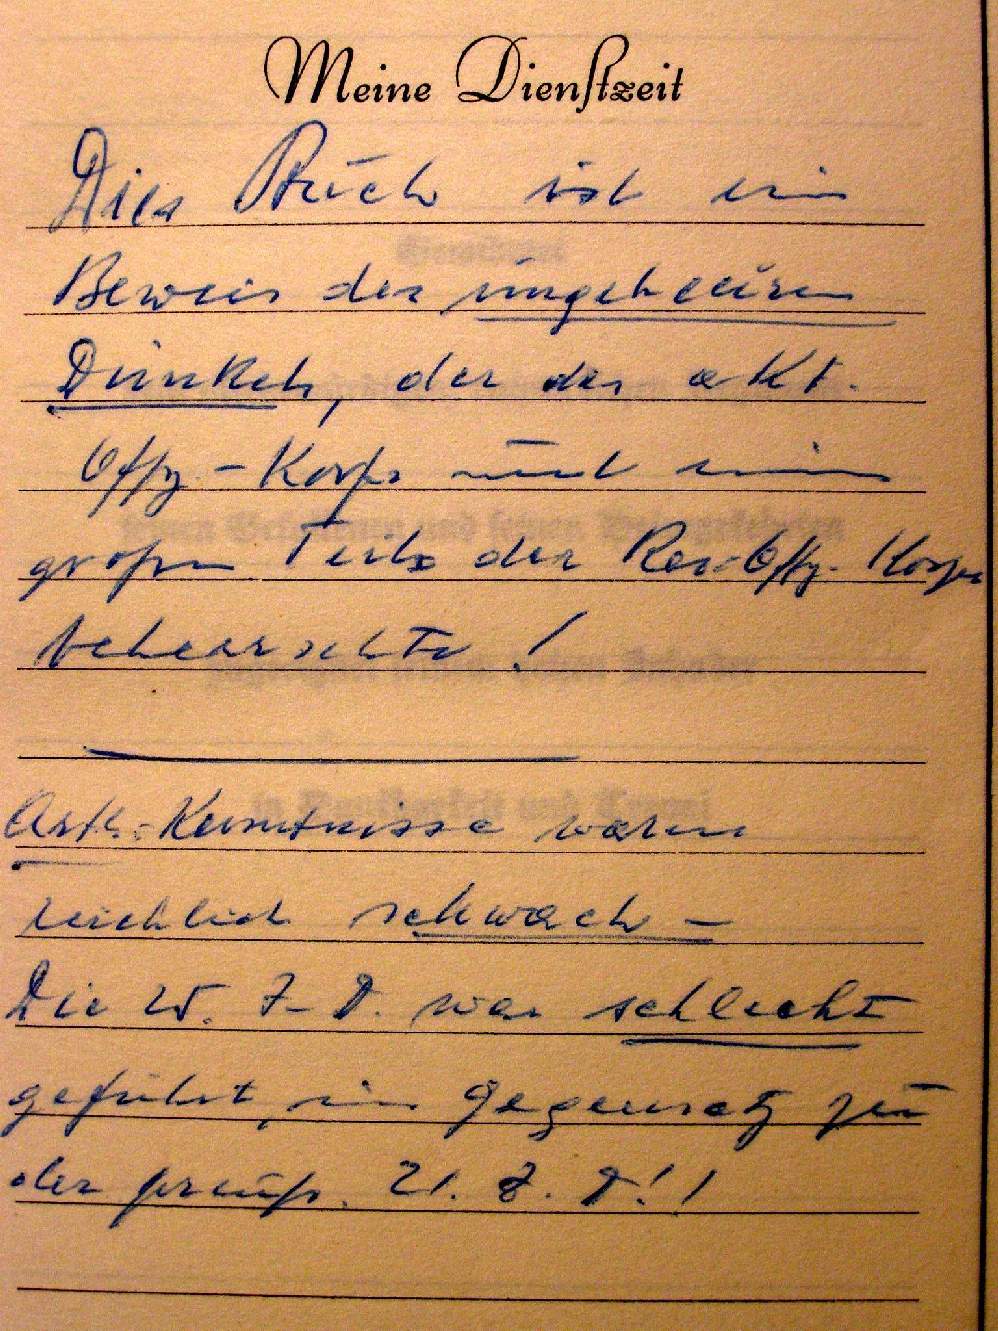 Meine Dienstzeit
Dies Buch ist ein
Beweis des ungeheuren
Dünkels, der das akt.
Offz-Korps und einen
großen Teils des Res-Offz. Korps
beherrschte!
Art.-Kenntnisse waren
reichlich schwach –
Die 25. I-D. war schlecht
geführt, im Gegensatz zu
der preuß. 21. I. D!!